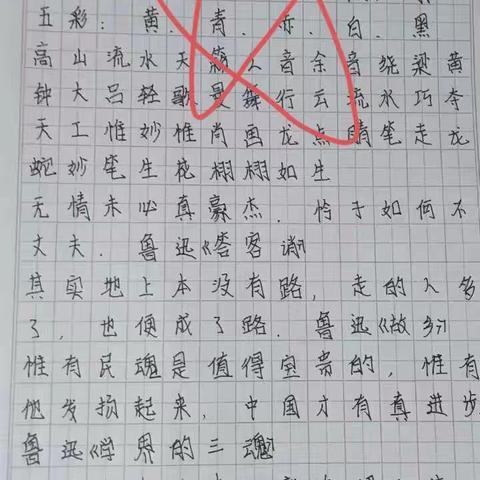 五彩：黄、青、亦、白、黑
高山流水天籁之音余音绕梁黄
钟大吕轻歌曼舞行云流水巧夺
天工惟妙惟肖画龙点睛笔走龙
蛇妙笔生花栩栩如生
无情未必真豪杰，怜子如何不
丈夫．鲁迅《答客诮》
其实地上本没有路，走的人多
了，也便成了路．鲁迅《故乡》
惟有民魂是值得宝贵的，惟有
他发扬起来，中国才有真进步
鲁迅《学界的三魂》